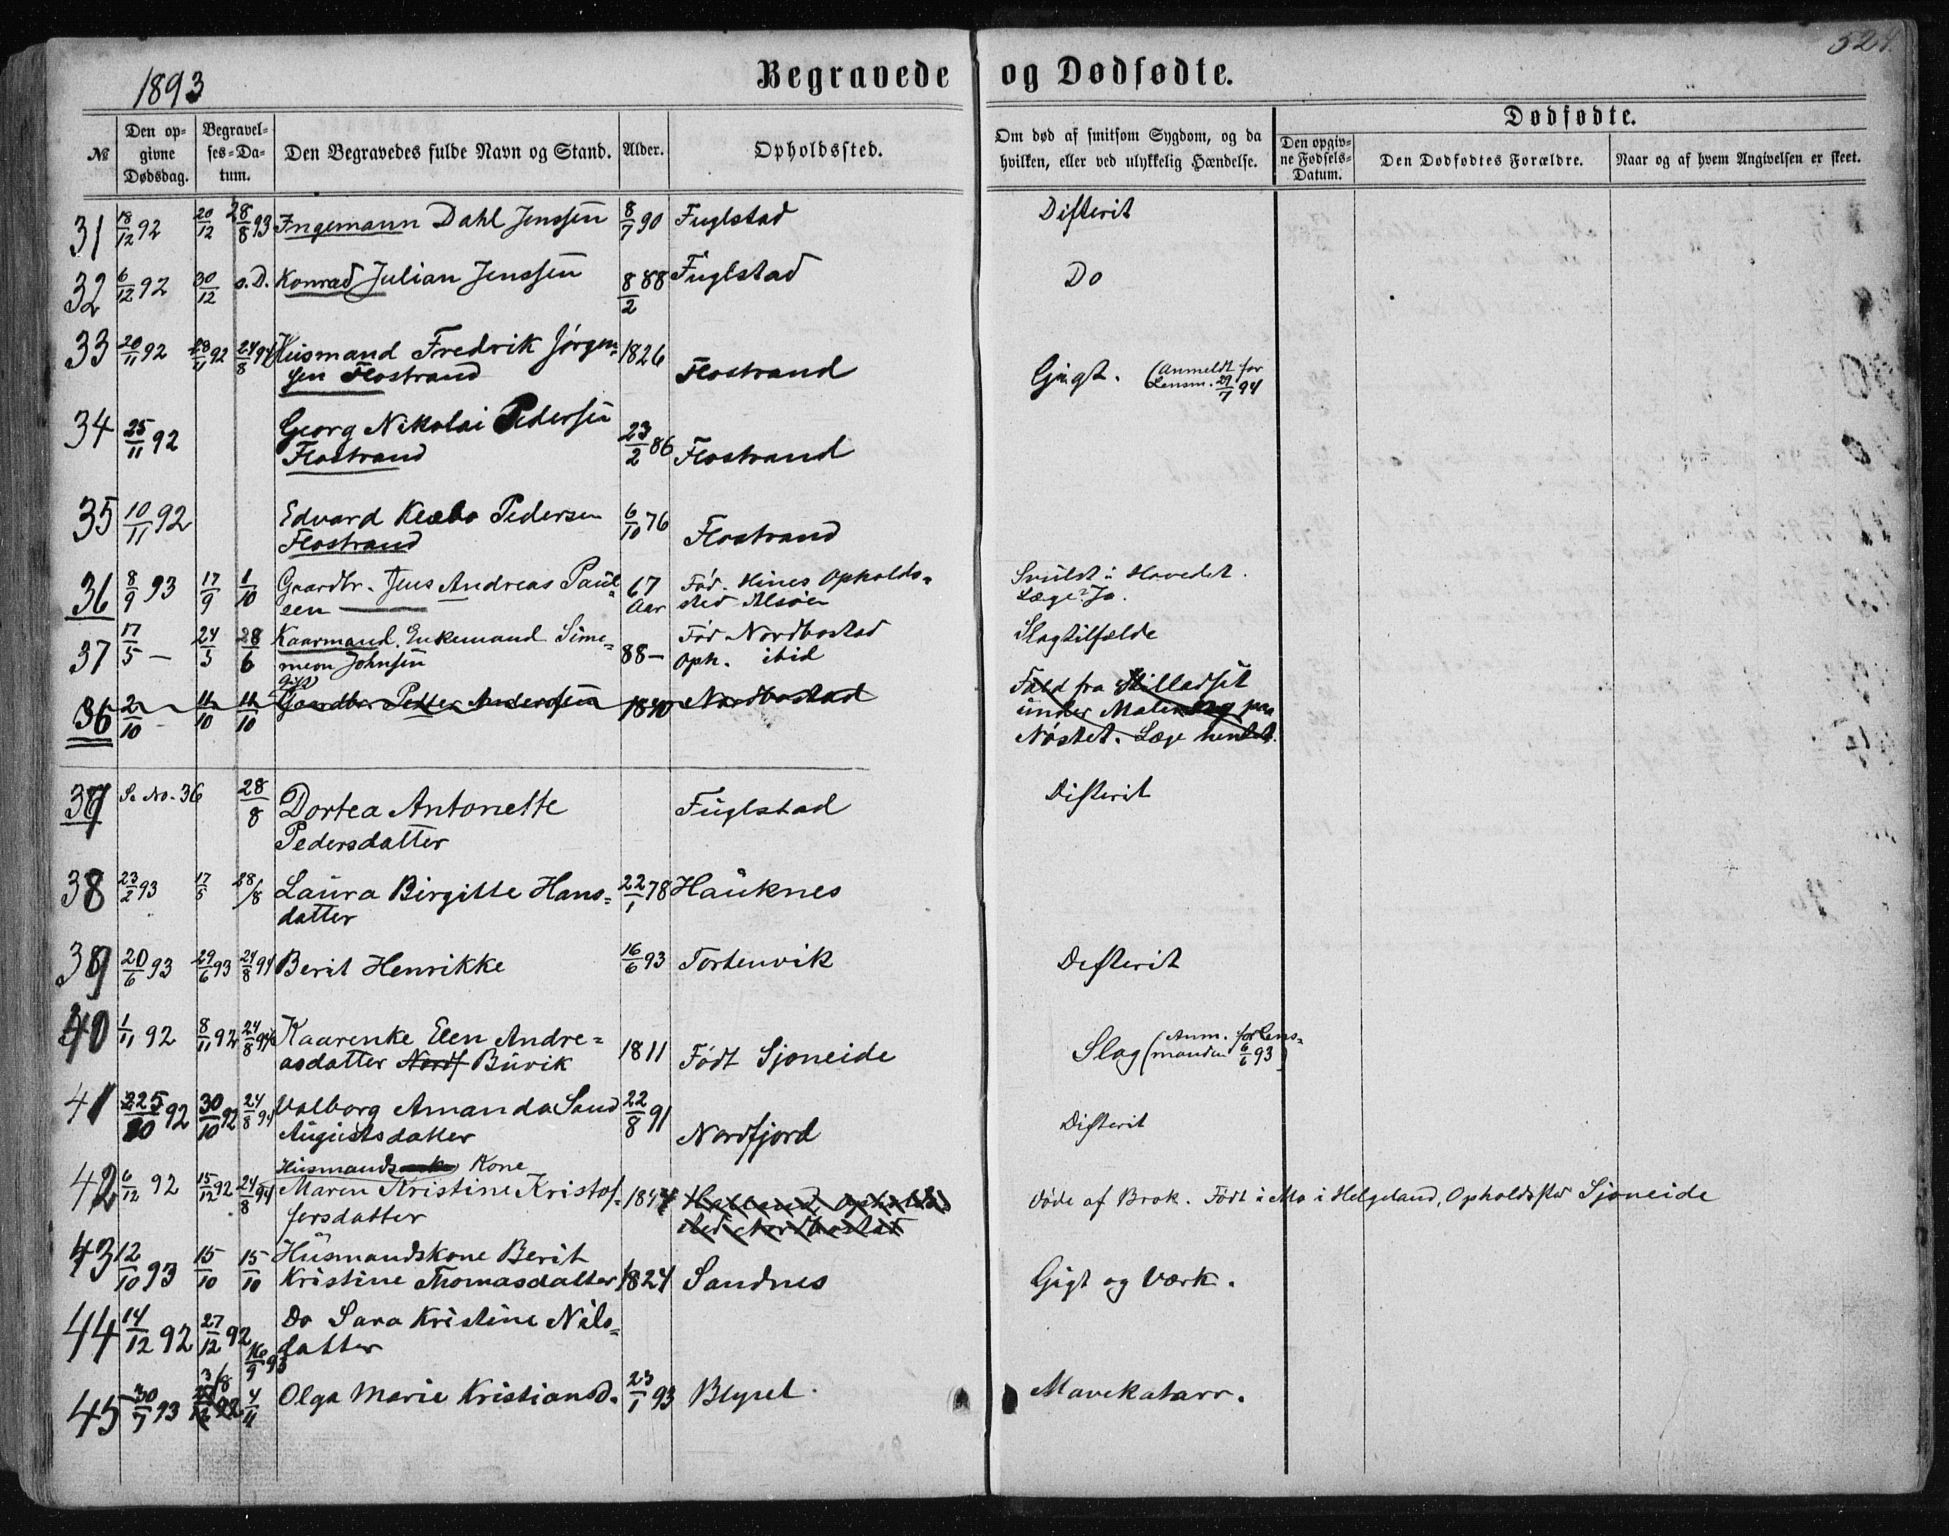 1893
Begravede og Dødfødte.
524.
№
Den opgivne Dødsdag.
Begravelses-Datum.
Den Begravedes fulde Navn og Stand.
Alder.
Opholdssted.
Om død af smitsom Sygdom, og da hvilken, eller ved ulykkelig Hændelse.
Dødfødte.
Den opgivne Fødsels-Datum.
Den Dødfødtes Forældre.
Naar og af hvem Angivelsen er skeet.
31 18/12 92 20/12 28/8 93 Ingemann Dahl Jenssen 8/7 90 Fuglstad Difterit
32 6/12 92 30/12 s. D. Konrad Julian Jenssen 8/2 88 Fuglstad Do
33 20/11 92 28/11 92 24/8 94 Husmand Fredrik Jørgen-
sen Flostrand 1826 Flostrand Gigt. (Anmeldt for
Lensm. 29/7 94
34 25/11 92 Georg Nikolai Pedersen
Flostrand 23/2 86 Flostrand
35 10/11 92 Edvard Klæbo Pedersen
Flostrand 6/10 76 Flostrand
36 8/9 93 17/9 1/10 Gaardbr. Jens Andreas Paul-
sen 67 Aar Fød. Hines Opholds-
sted Alsøen Svulst i Hovedet.
Læge? Ja.
37 17/5 — 24/5 28/6 Kaarmand, Enkemand Sime-
meon Johnsen 88 — Fød Nordbostad
Oph. ibid Slagtilfælde
36 2/10 — 11/10 11/10 Gift
Gaardbr. Petter Andersen 1840 Nordbostad Fald fra Stilladset
under Maling paa
Nøstet. Læge hentet.
37 Se No. 36 28/8 Dortea Antonette
Pedersdatter Fuglstad Difterit
38 23/2 93 17/5 28/8 Laura Birgitte Hans-
datter 22/1 78 Hauknes
39 20/6 93 29/6 93 24/8 94 Berit Henrikke 16/6 93 Tortenvik Difterit
40 1/11 92 8/11 92 24/8 94 Kaarenke Elen Andre-
asdatter Nordf Buvik 1811 Født Sjoneide Slag (Anm. for Lens-
manden 6/6 93)
41 25/10 92 30/10 92 24/8 94 Valborg Amanda Sand
Augustsdatter 22/8 91 Nordfjord Difterit
42 6/12 92 15/12 92 24/8 94 Husmands Kone
Maren Kristine Kristof-
fersdatter 1844 Opholds
sted Nordbostad Døde af Brok. Født i Mo i Helgeland, Opholdssted Sjoneide
43 12/10 93 15/10 15/10 Husmandskone Berit
Kristine Thomasdatter 1824 Sandnes Gigt og Værk.
44 14/12 92 27/12 92 16/9 93 Do Sara Kristine Nils-
datter
45 30/7 93 3/8 4/11 Olga Marie Kristiansd. 23/1 93 Blyset. Mavekatarr.